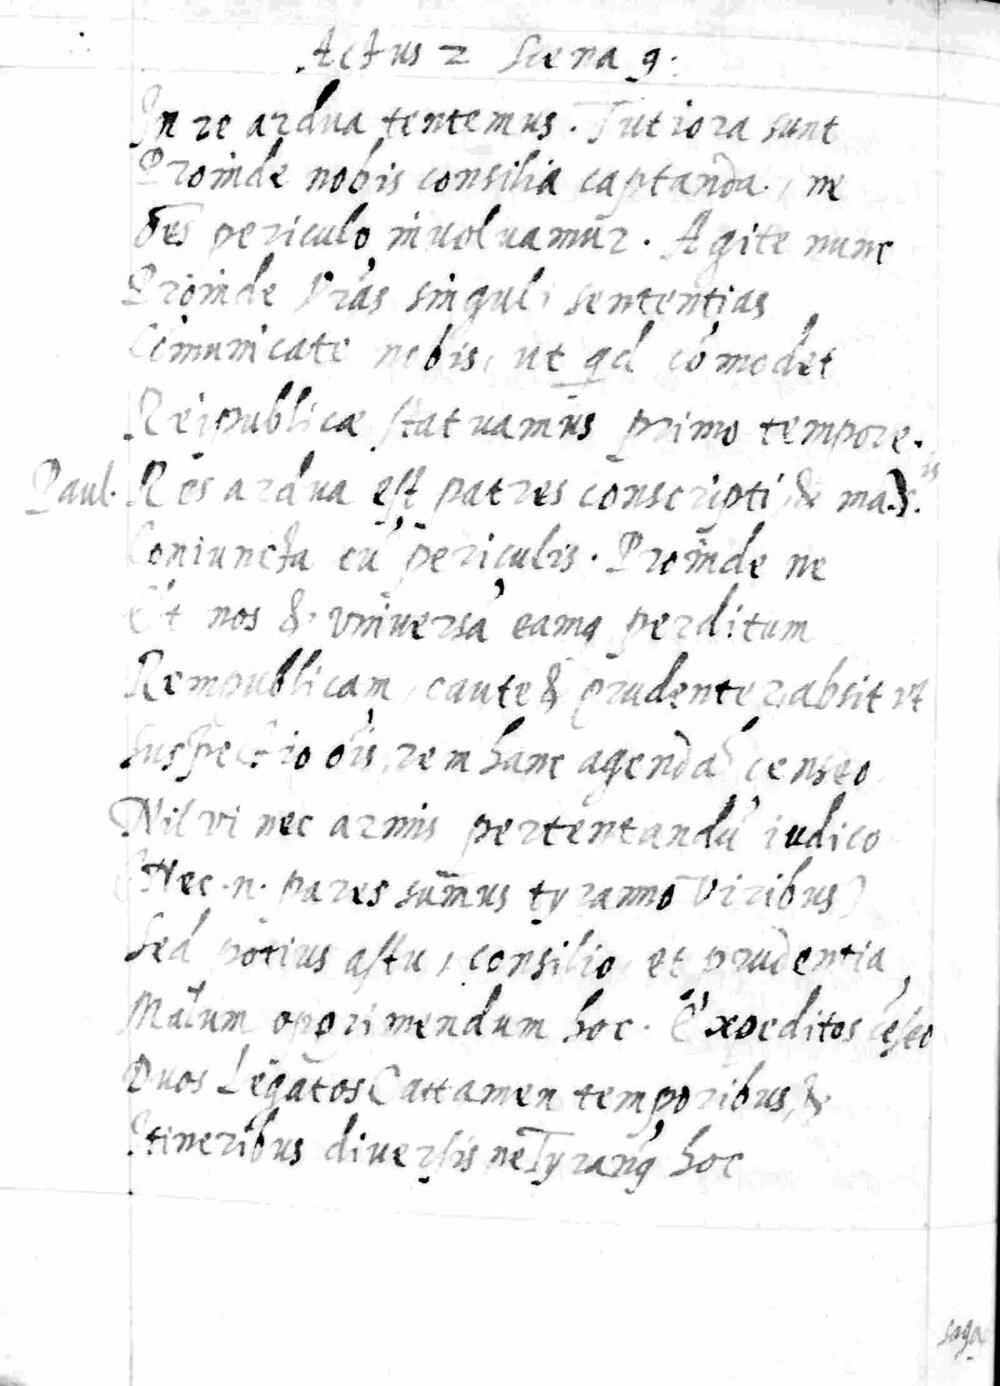 Actus 2 Scena 9:
In re ardua tentemus. Tutiora sunt
Proinde nobis consilia captanda, ne
Oẽs periculo involvamur. Agite nunc
Proinde Vras singuli sententias
Comunicate nobis, ut qd cõmodet
Reipublicæ statuamus primo tempore.
Paul. Res ardua est patres conscripti, & mag.is
Coniuncta cũ periculis. Proinde ne
Et nos & universã eamq perditum
Rempublicam, caute & prudenter, absit ut
Suspectio oĩs, rem hanc agendã censeo
Nil vi nec armis pertentandũ iudico
(Nec .n. pares sumus tyranno viribus)
Sed potius astu, consilio, et prudentia,
Malum opprimendum hoc. Expeditos cẽseo
Duos Legatos (attamen temporibus, &
Itineribus diversis ne Tyrannq hoc
saga